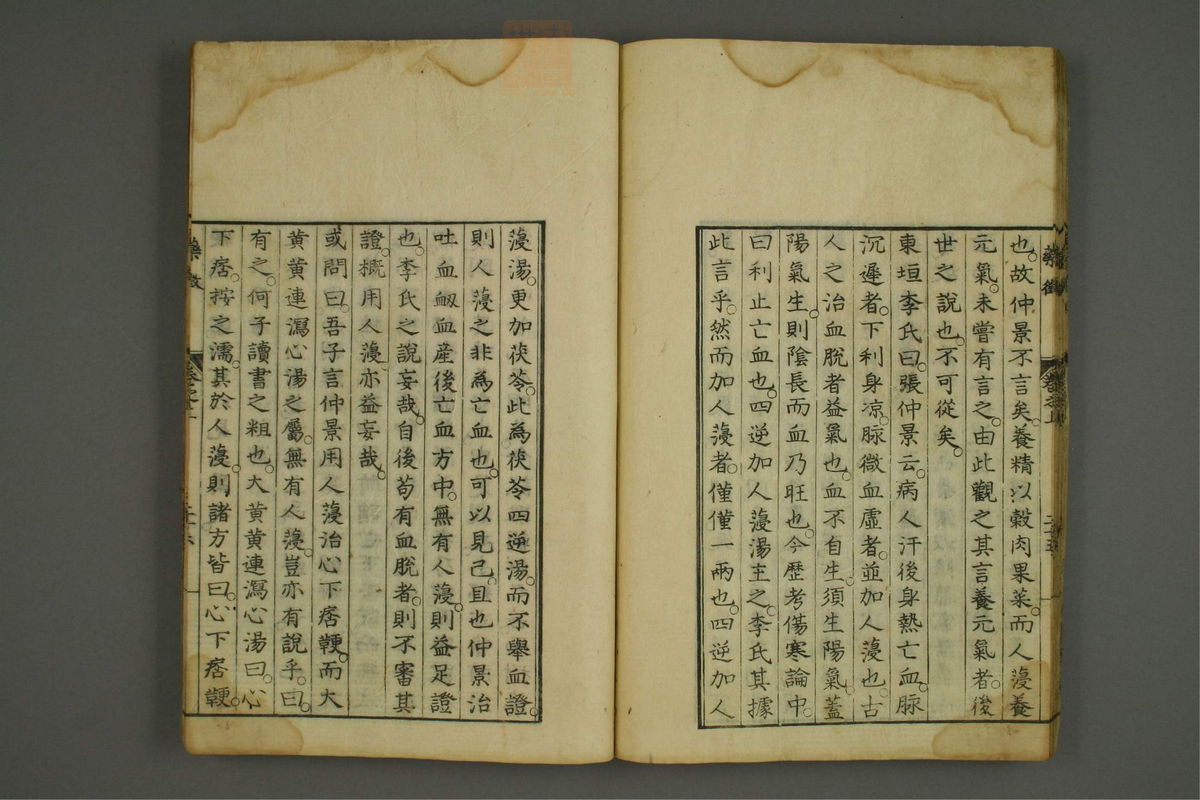 也。故仲景不言矣。養精以穀肉果菜。而人蓡養
元氣。未嘗有言之。由此觀之其言養元氣者。後
世之說也。不可從矣。
東垣李氏曰。張仲景云。病人汗後身熱亡血。脈
沉遲者。下利身凉。脈微血虛者。並加人蓡也。古
人之治血脫者益氣也。血不自生。須生陽氣。蓋
陽氣生。則陰長而血乃旺也。今歷考傷寒論中。
曰利止亡血也。四逆加人蓡湯主之。李氏其據
此言乎。然而加人蓡者。僅僅一兩也。四逆加人
蓡湯。更加茯苓。此為茯苓四逆湯。而不舉血證。
則人蓡之非為亡血也。可以見已。且也仲景治
吐血衂血産後亡血方中。無有人蓡。則益足證
也。李氏之說妄哉。自後苟有血脫者。則不審其
證。概用人蓡。亦益妄哉。
或問曰。吾子言仲景用人蓡治心下痞鞕。而大
黄黄連瀉心湯之屬。無有人蓡。豈亦有說乎。曰。
有之。何子讀書之粗也。大黄黄連瀉心湯曰。心
下痞。按之濡。其於人蓡。則諸方皆曰。心下痞鞕。
藥徵
卷之上
二十六